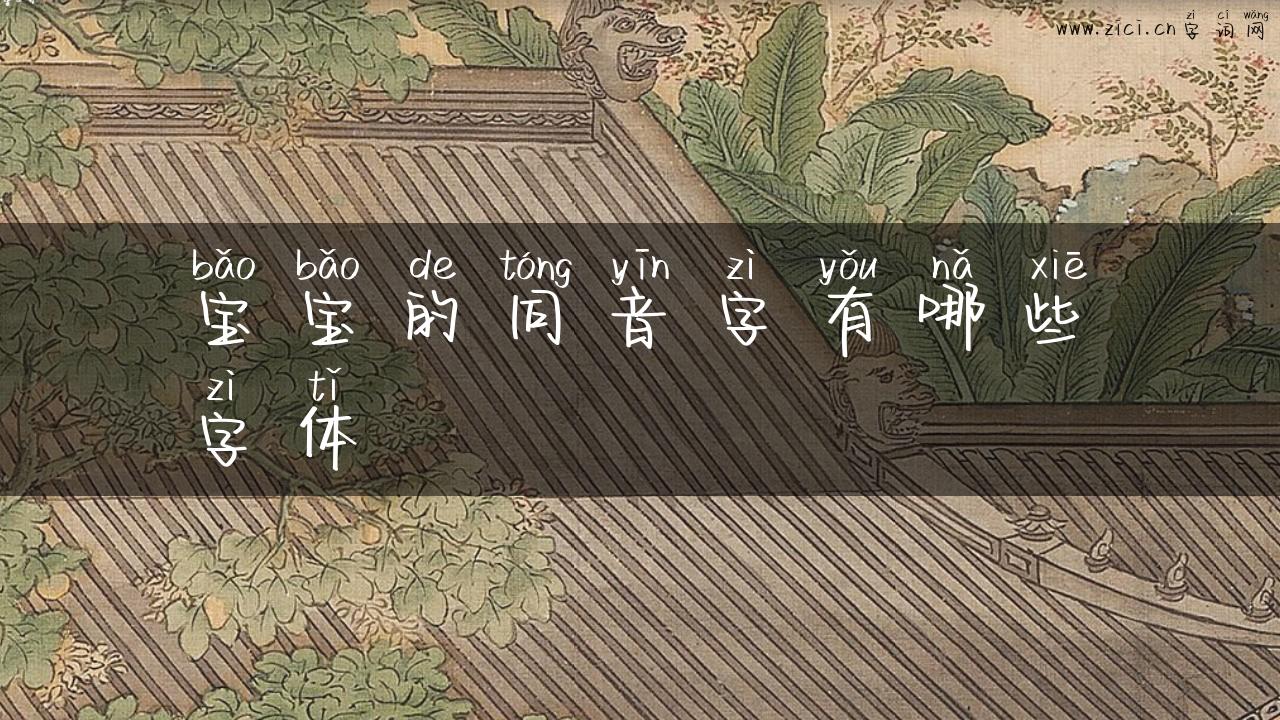 zì cí wǎng
www.zici.cn 字词网
bǎo bǎo de tóng yīn zì yǒu nǎ xiē
宝宝的同音字有哪些
zì tǐ
字体